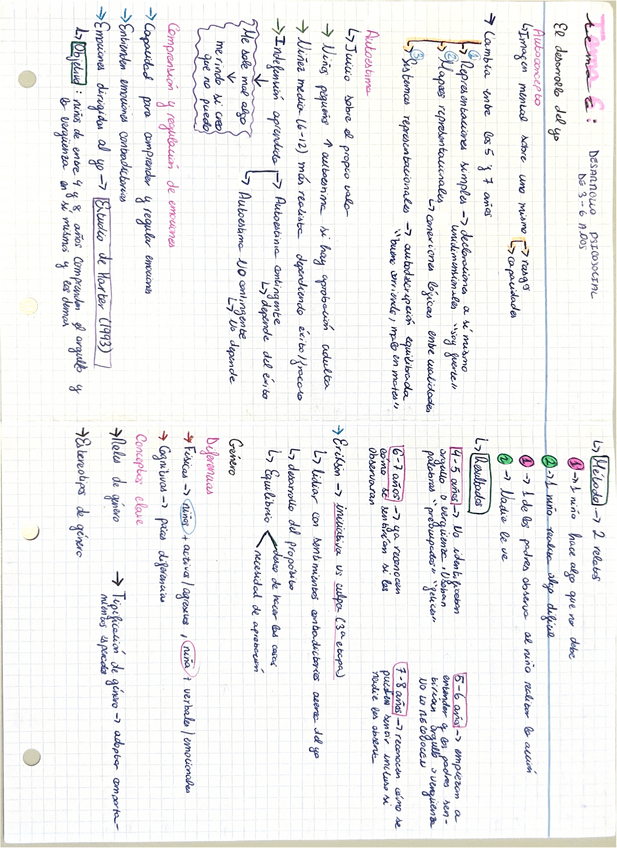 Tema 6:
DESARROLLO PSICOSOCIAL
DE 3-6 AÑOS
El desarrollo del yo
Autoconcepto
↳ Imagen mental sobre uno mismo → rasgos
→ capacidades
→ Cambia entre los 5 y 7 años
1 Representaciones simples → declaraciones a sí mismo
unidimensionales "soy fuerte"
2 Mapas representacionales
↳ conexiones lógicas entre cualidades
3 Sistemas representacionales → autodescripción equilibrada
"bueno corriendo, malo en mates"
Autoestima
↳ Juicio sobre el propio valor
→ Niños pequeños ↑ autoestima si hay aprobación adulta
→ Niñez media (6-12) más realista dependiendo éxito/fracaso
→ Indefensión aprendida → Autoestima contingente
↳ depende del éxito
Me sale mal algo
↓
me rindo si creo
que no puedo
↳ Autoestima NO contingente
↳ No depende
Comprensión y regulación de emociones
→ Capacidad para comprender y regular emociones
→ Entender emociones contradictorias
→ Emociones dirigidas al yo → Estudio de Harter (1993)
↳ Objetivo: niños de entre 4 y 8 años comprenden el orgullo y
la vergüenza en sí mismos y los demás
↳ Método → 2 relatos
1 → 1 niño hace algo que no debe
2 → 1 niño realiza algo difícil
1 → 1 de los padres observa al niño realizar la acción
2 → Nadie le ve
↳ Resultados
4-5 años → No identificaban
orgullo o vergüenza. Usaban
palabras: "preocupados"
5-6 años → empiezan a
entender q los padres sen-
tirían orgullo o vergüenza
NO LO RECONOCEN
6-7 años → ya reconocen
cómo se sentirían si les
observaran
7-8 años → reconocen cómo se
pueden sentir incluso si
nadie les observa
→ Erikson → iniciativa vs culpa (3ª etapa)
↳ Lidiar con sentimientos contradictorios acerca del yo
↳ desarrollo del propósito
↳ Equilibrio
deseo de hacer las cosas
necesidad de aprobación
Género
Diferencias
→ Físicas → niños + activos/agresivos, niñas + verbales/emocionales
→ Cognitivas → pocas diferencias
Conceptos clave
→ Roles de género
→ Tipificación de género → adoptar comporta-
mientos esperados
→ Estereotipos de género